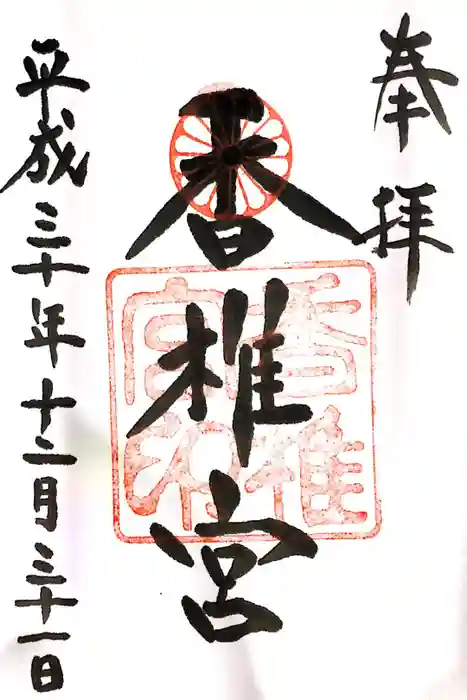 奉拝
香椎宮
平成三十年十二月三十一日